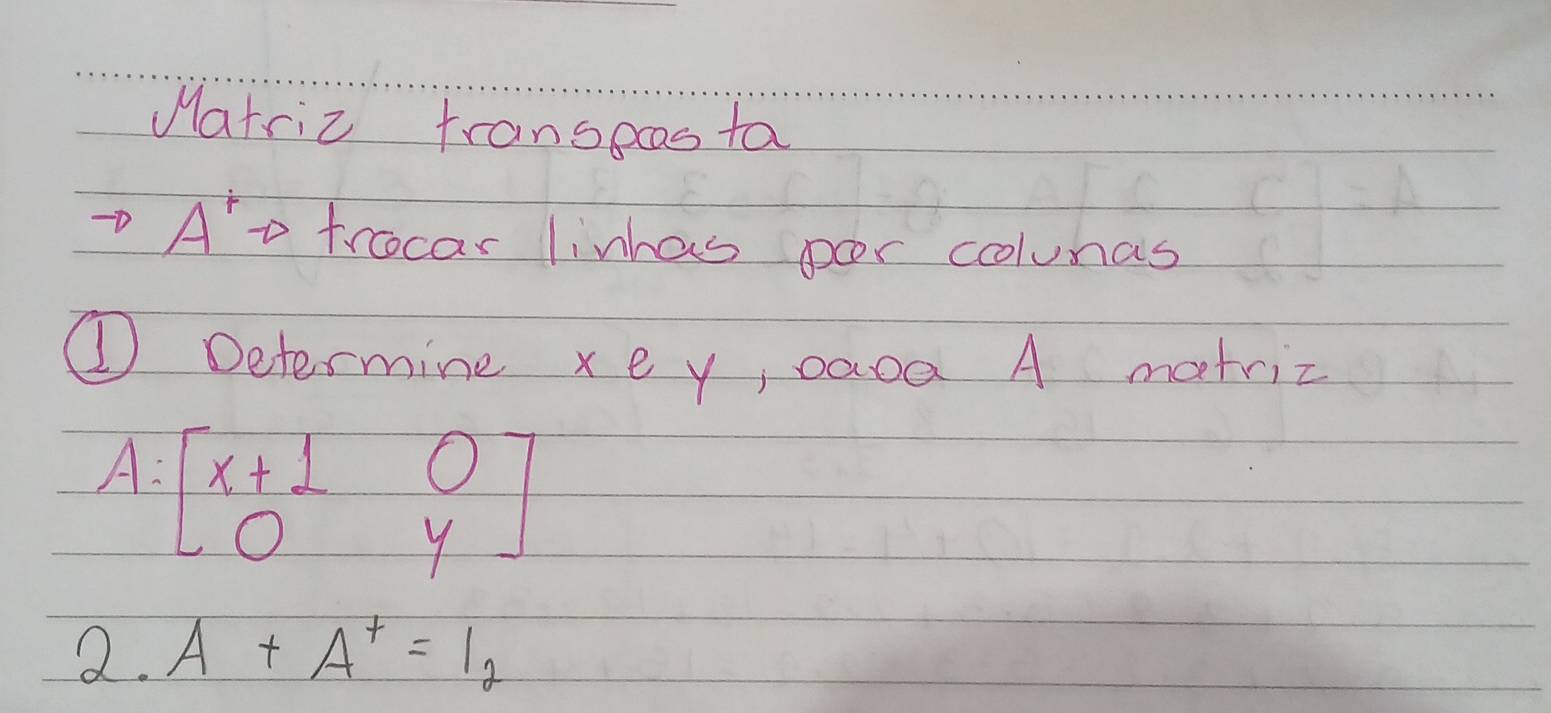 Matriz transposta
→ Aᵗ → trocar linhas por colunas
① Determine x e y, dada A matriz
A: [x+1 0
0 y]
2. A + Aᵗ = I₂